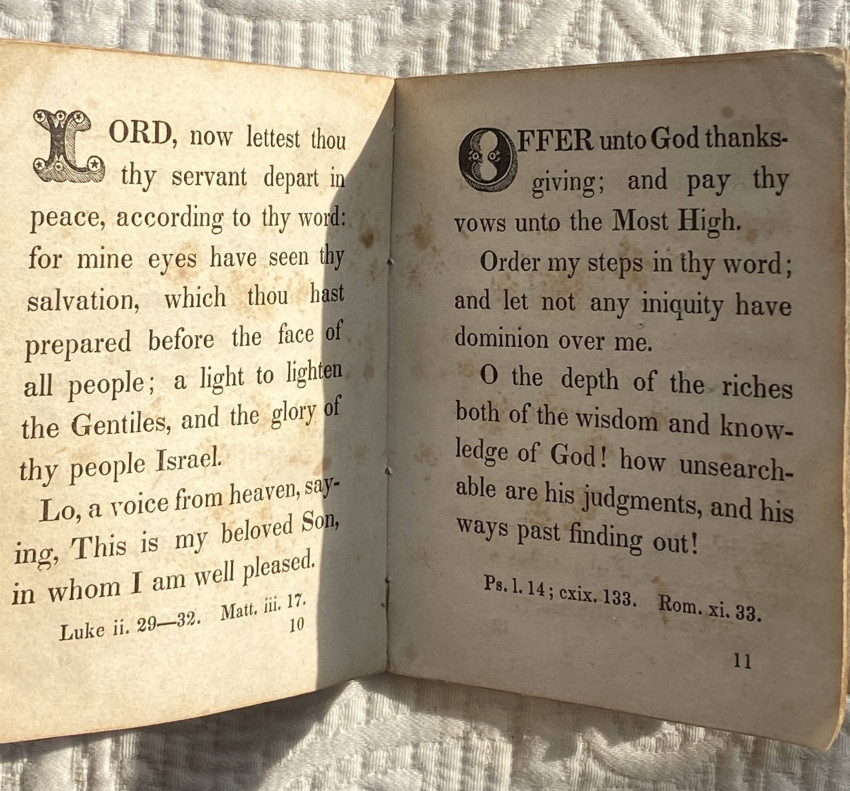 LORD, now lettest thou
thy servant depart in
peace, according to thy word:
for mine eyes have seen thy
salvation, which thou hast
prepared before the face of
all people; a light to lighten
the Gentiles, and the glory of
thy people Israel.
Lo, a voice from heaven, say-
ing, This is my beloved Son,
in whom I am well pleased.
Luke ii. 29—32. Matt. iii. 17.
10
OFFER unto God thanks-
giving; and pay thy
vows unto the Most High.
Order my steps in thy word;
and let not any iniquity have
dominion over me.
O the depth of the riches
both of the wisdom and know-
ledge of God! how unsearch-
able are his judgments, and his
ways past finding out!
Ps. l. 14; cxix. 133. Rom. xi. 33.
11